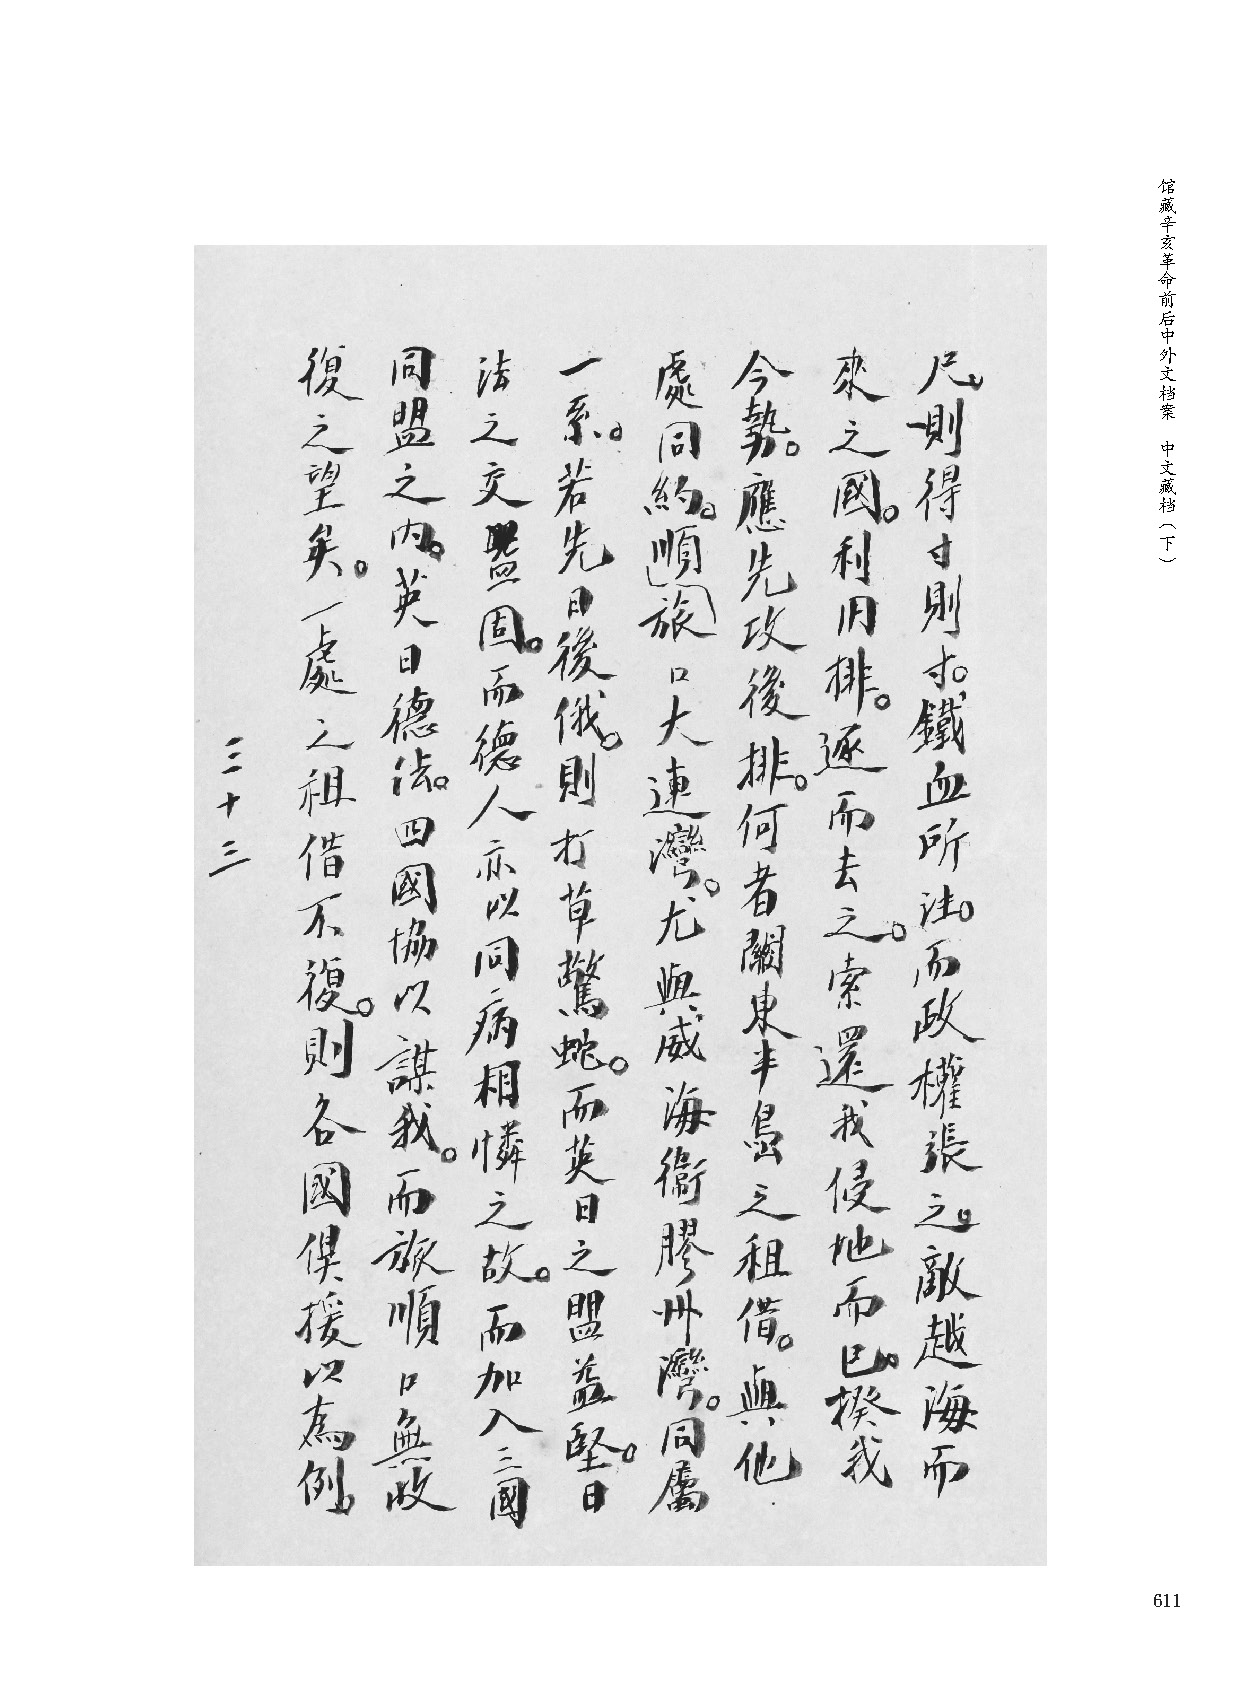 馆藏辛亥革命前后中外文档案 中文藏档（下）
尺。則得寸則寸。鐵血所注。而政權張之。敵越海而
來之國。利用排。逐而去之。索還我侵地而已。揆我
今勢。應先攻後排。何者關東半島之租借。與他
處同約。順旅口大連灣。尤與威海衛膠州灣。同屬
一系。若先日後俄。則打草驚蛇。而英日之盟益堅。日
法之交固。而德人亦以同病相憐之故。而加入三國
同盟之內。英日德法。四國協以謀我。而旅順口無收
復之望矣。一處之租借不復。則各國俱援以為例。
三十三
611